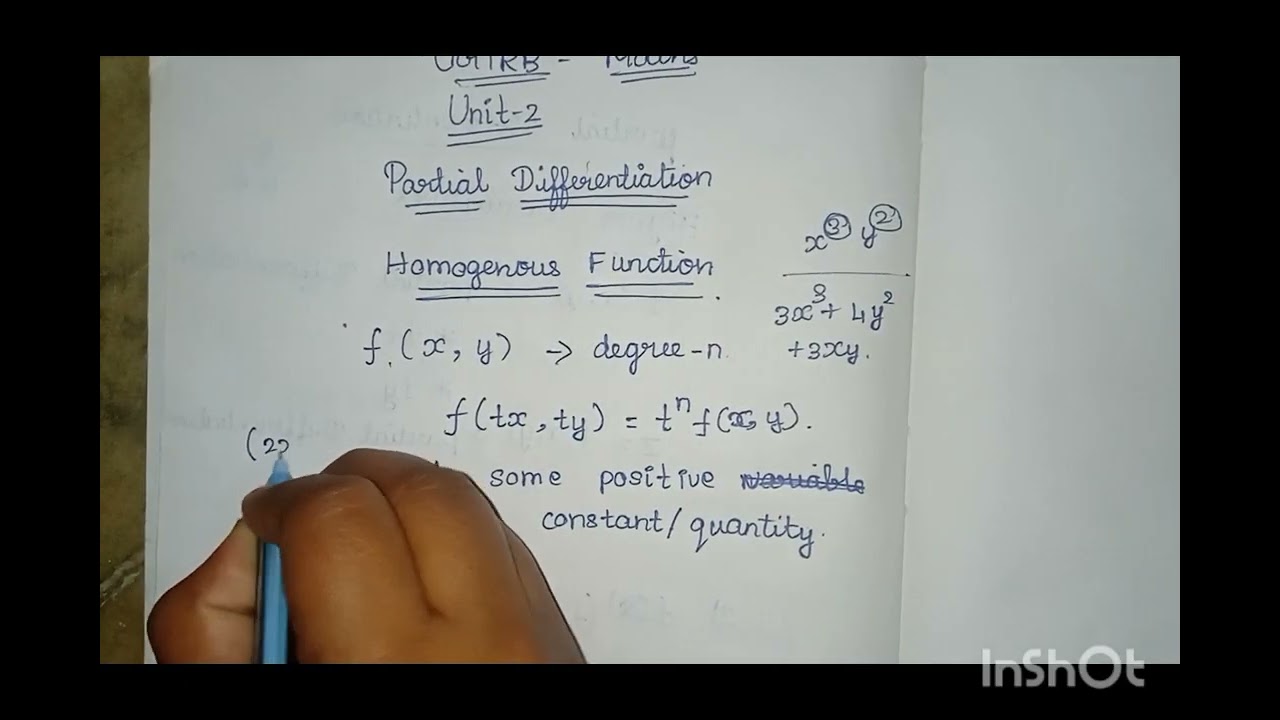 Unit-2
Partial Differentiation
Homogenous Function
x³ y²
3x³ + 4y²
+3xy.
f(x, y) → degree-n.
f(tx, ty) = tⁿ f(x, y).
some positive
constant/quantity.
InShOt